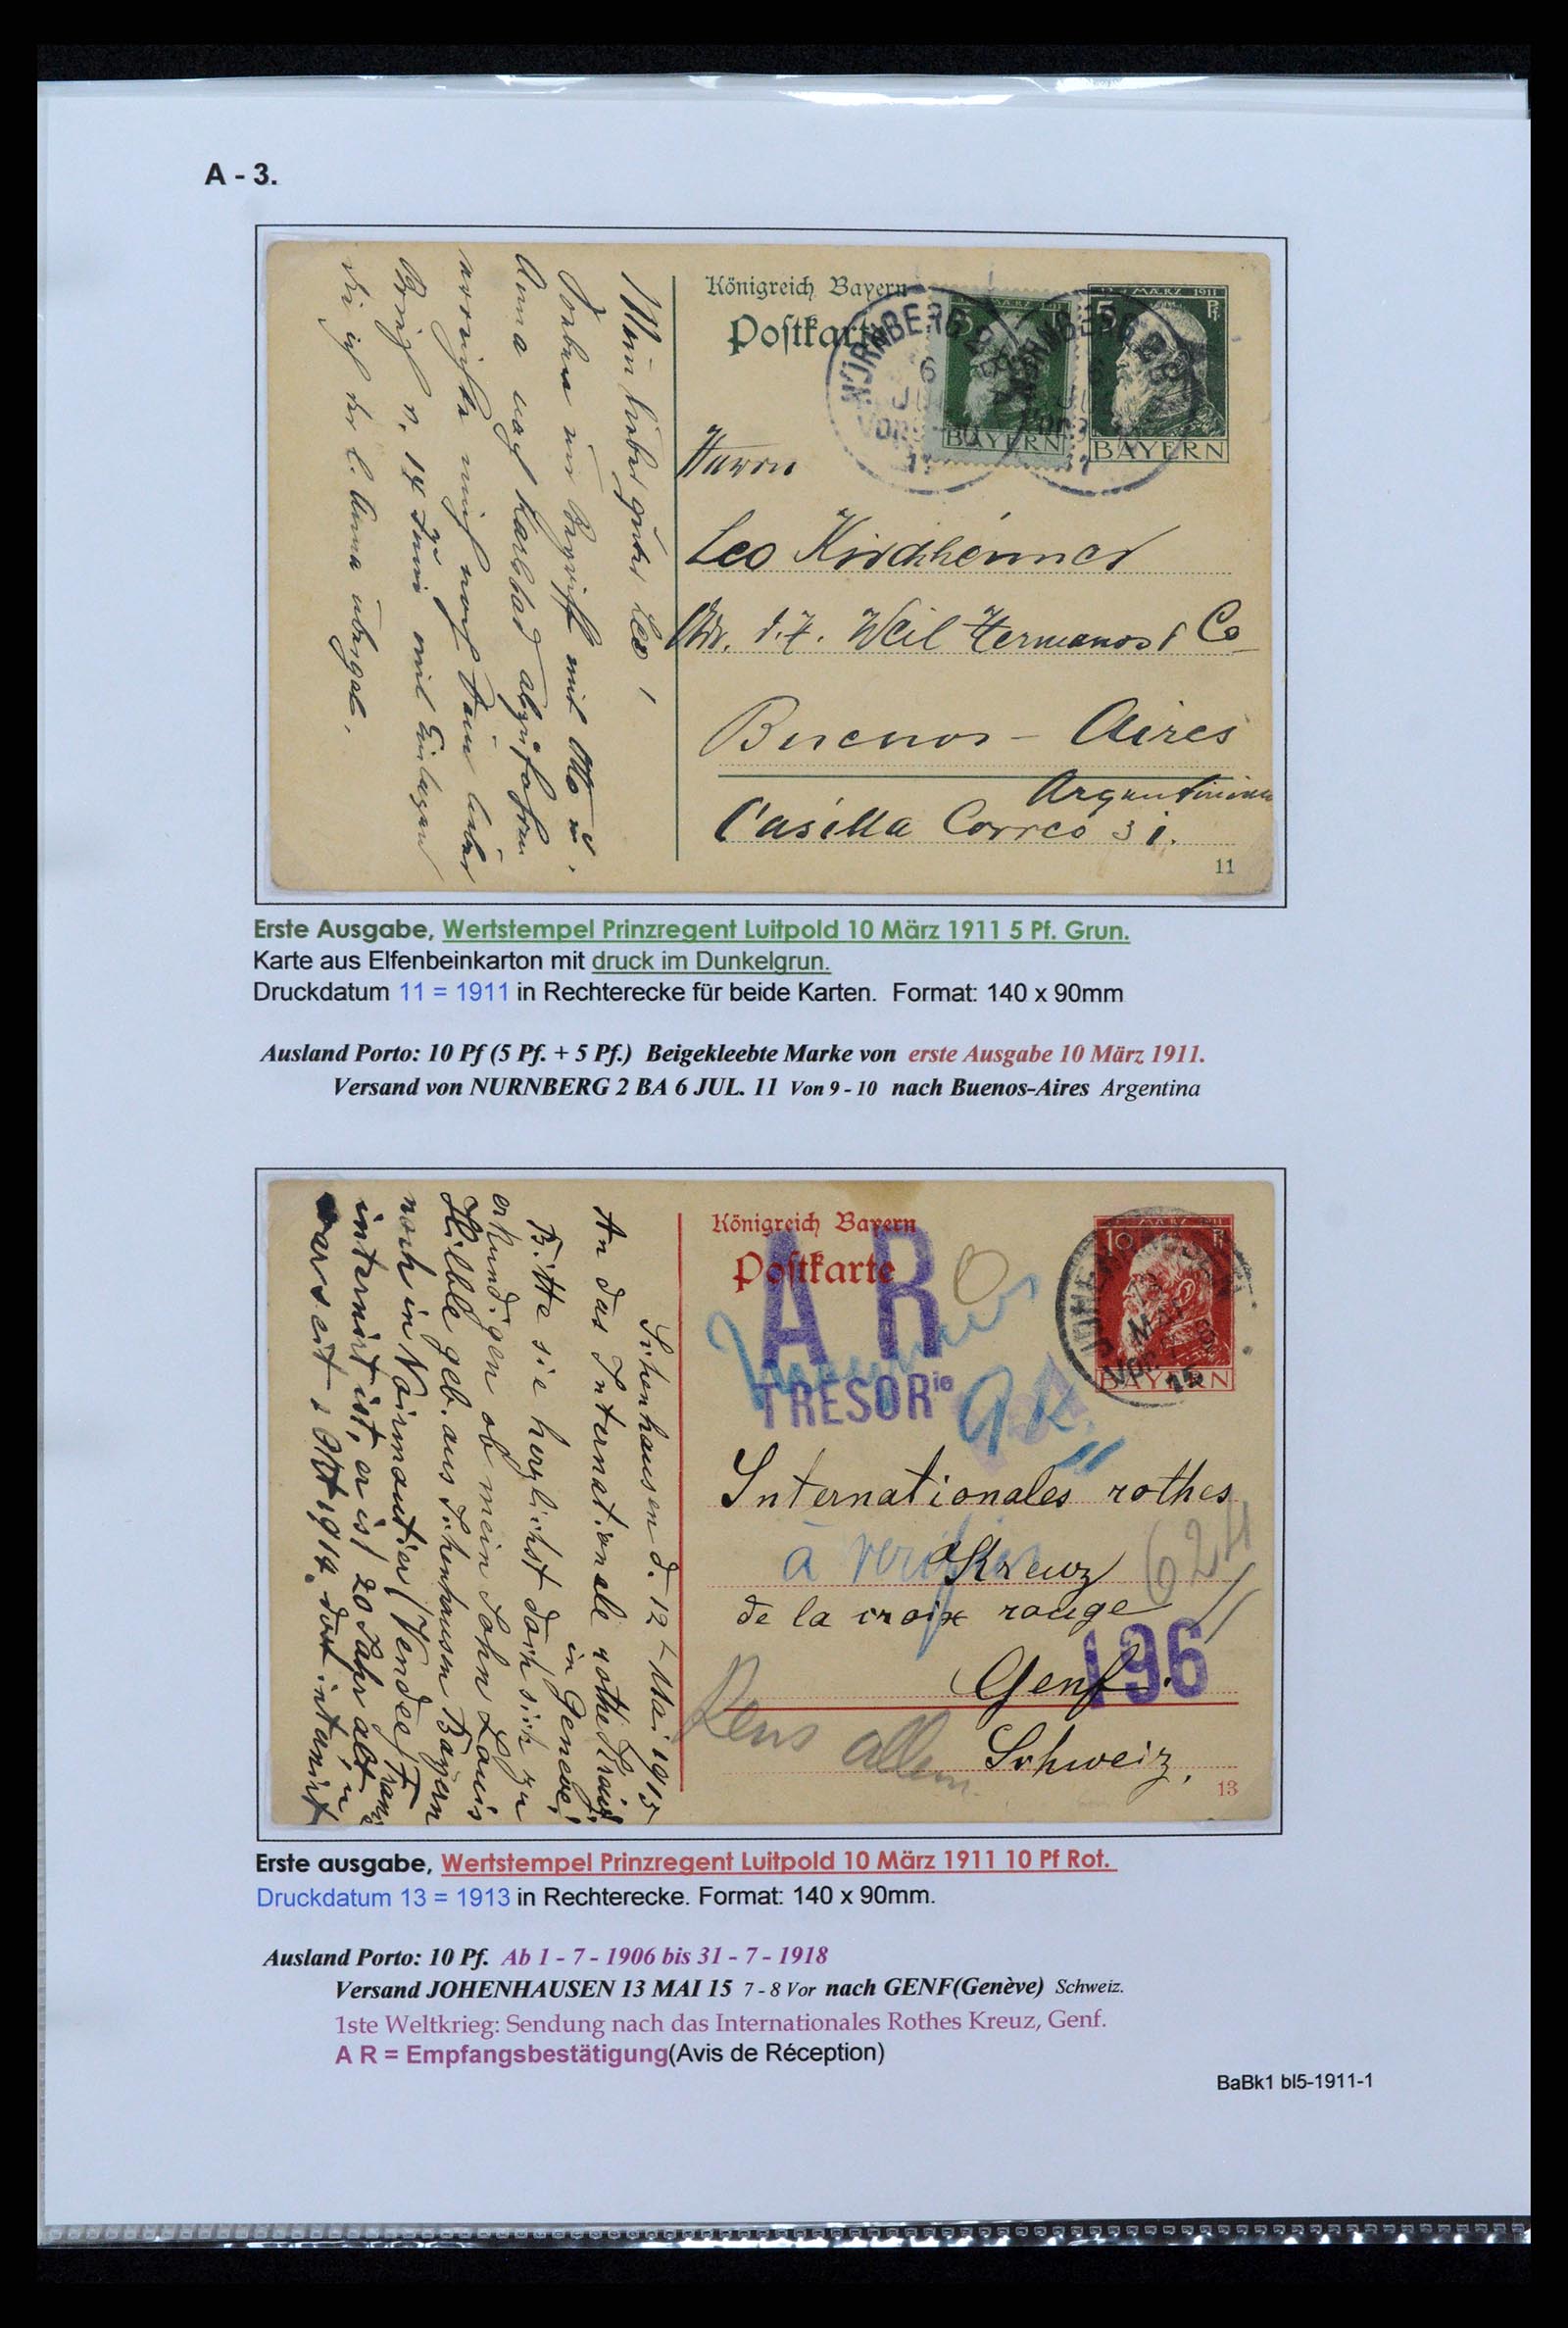 A - 3.
Königreich Bayern
Postkarte
12. MÄRZ 1911
5 Pf.
BAYERN
BAYERN
NÜRNBERG 2
6
JUL
VOR
11
Mein lieber guter Leo!
Soeben im Begriff mit Otto u.
Anna nach Karlsbad abzufahren
noch Dein lieber
Brief v. 14 Juni mit Einlagen
die ich der l. Anna übergab.
Herrn
Leo Kirchheimer
Adr. d. H. Weil Hermanos & Co
Buenos - Aires
Argentinien
Casilla Correo 31.
11
Erste Ausgabe, Wertstempel Prinzregent Luitpold 10 März 1911 5 Pf. Grun.
Karte aus Elfenbeinkarton mit druck im Dunkelgrun.
Druckdatum 11 = 1911 in Rechterecke für beide Karten. Format: 140 x 90mm
Ausland Porto: 10 Pf (5 Pf. + 5 Pf.) Beigekleebte Marke von erste Ausgabe 10 März 1911.
Versand von NURNBERG 2 BA 6 JUL. 11 Von 9 - 10 nach Buenos-Aires Argentina
Königreich Bayern
Postkarte
10 Pf
BAYERN
A R
TRESORie
Ichenhausen d. 12t Mai 1915
An das Internationale rothe Kreuz
in Geneve!
Bitte sie herzlichst doch sich zu
erkundigen ob mein Sohn Louis
Hilble geb. aus Ichenhausen Bayern
noch in Noirmoutier (Vendee) Frank
internirt ist, er ist 20 Jahr alt u
war seit 1 Okt 1914 dort internirt
Internationales rothes
à
Kreuz
624
de la croix rouge
196
Genf.
Rens allem.
Schweiz.
13
Erste ausgabe, Wertstempel Prinzregent Luitpold 10 März 1911 10 Pf Rot.
Druckdatum 13 = 1913 in Rechterecke. Format: 140 x 90mm.
Ausland Porto: 10 Pf. Ab 1 - 7 - 1906 bis 31 - 7 - 1918
Versand JOHENHAUSEN 13 MAI 15 7 - 8 Vor nach GENF(Genève) Schweiz.
1ste Weltkrieg: Sendung nach das Internationales Rothes Kreuz, Genf.
A R = Empfangsbestätigung(Avis de Réception)
BaBk1 bl5-1911-1